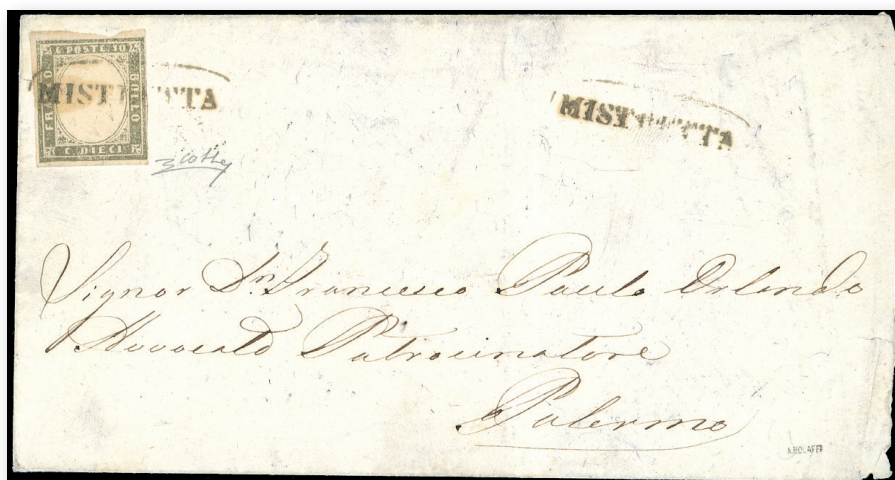 C. POSTE 10
FRANCO
BOLLO
C. DIECI
MISTRETTA
MISTRETTA
Signor Dn. Francesco Paolo Orlando
Avvocato Patrocinatore
Palermo
A. BOLAFFI